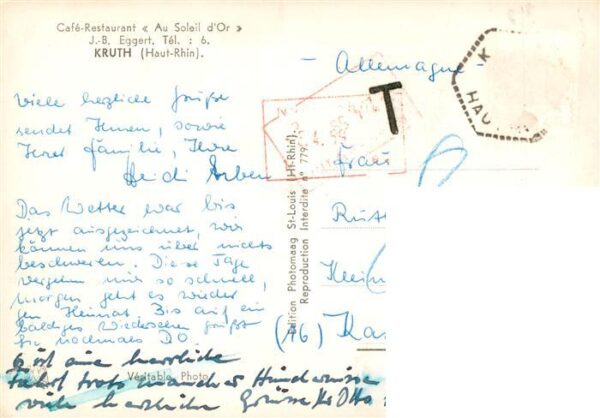 Café-Restaurant « Au Soleil d'Or »
J.-B. Eggert, Tél. : 6.
KRUTH (Haut-Rhin).
- Allemagne -
K
HAU
T
Viele herzliche Grüße
sendet Ihnen, sowie
Ihrer Familie, Ihre
Heidi Erben
Das Wetter war bis
jetzt ausgezeichnet, wir
können uns über nichts
beschweren. Diese Tage
vergehen mir so schnell,
morgen geht es wieder
gen Heimat. Bis auf ein
baldiges Wiedersehen grüßt
Sie nochmals DO
Es ist eine herrliche
Fahrt trotz mancher Hindernisse
viele herzliche Grüsse
Véritable Photo
Edition Photomaag St-Louis (Ht-Rhin).
Reproduction Interdite n° 779
Frau
(A6) Ka